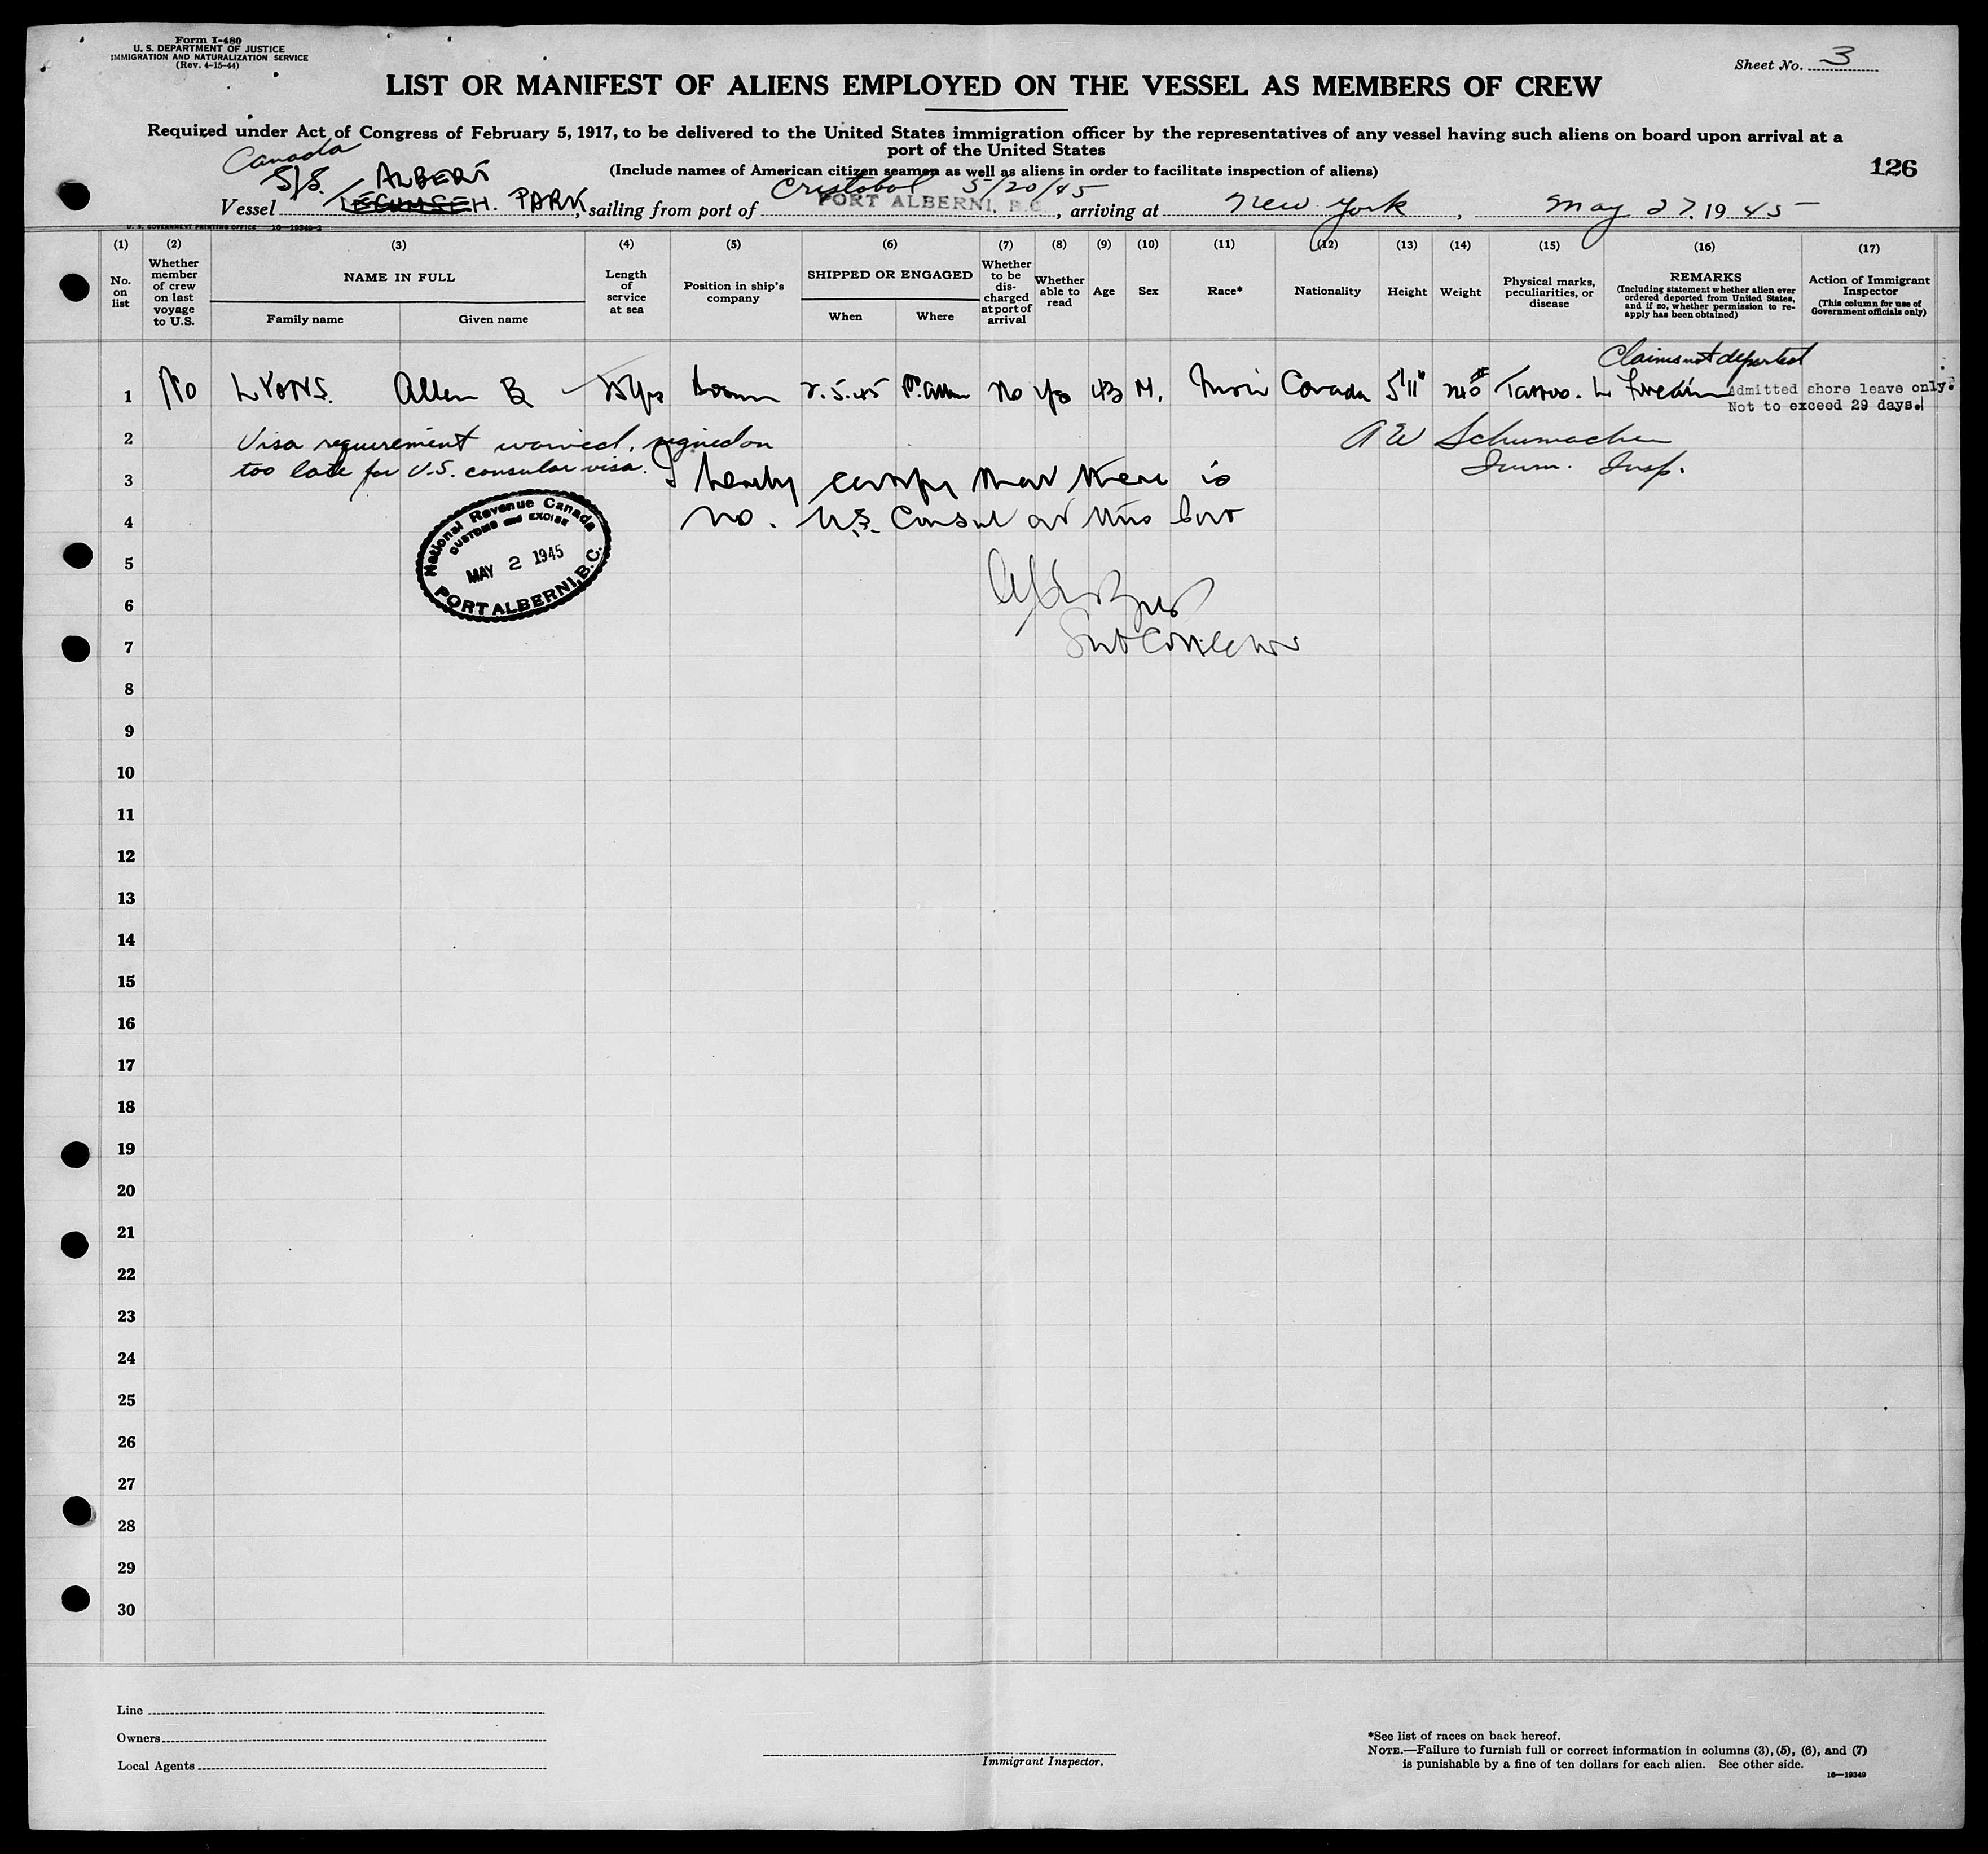 Form I-480
U. S. DEPARTMENT OF JUSTICE
IMMIGRATION AND NATURALIZATION SERVICE
(Rev. 4-15-44)
Sheet No. 3
LIST OR MANIFEST OF ALIENS EMPLOYED ON THE VESSEL AS MEMBERS OF CREW
Required under Act of Congress of February 5, 1917, to be delivered to the United States immigration officer by the representatives of any vessel having such aliens on board upon arrival at a
port of the United States
(Include names of American citizen seamen as well as aliens in order to facilitate inspection of aliens)
126
Canada
S/S. ALBERT
Cristobal 5/20/45
Vessel TECUMSEH. PARK, sailing from port of PORT ALBERNI, B.C., arriving at New York, May 27, 1945
U. S. GOVERNMENT PRINTING OFFICE 16-19349-2
(1) (2) (3) (4) (5) (6) (7) (8) (9) (10) (11) (12) (13) (14) (15) (16) (17)
No. on list
Whether member of crew on last voyage to U.S.
NAME IN FULL
Family name
Given name
Length of service at sea
Position in ship's company
SHIPPED OR ENGAGED
When
Where
Whether to be discharged at port of arrival
Whether able to read
Age
Sex
Race*
Nationality
Height
Weight
Physical marks, peculiarities, or disease
REMARKS
(Including statement whether alien ever ordered deported from United States, and if so, whether permission to reapply has been obtained)
Action of Immigrant Inspector
(This column for use of Government officials only)
Claims not deported
1 No LYONS. Allen B 2.5.45 No Yes 43 M. Canada 5'11" Tattoo. L Forearm
Admitted shore leave only.
Not to exceed 29 days.
2 Visa requirement waived, signed on
A W Schumacher
too late for U.S. consular visa.
Imm. Insp.
3 I hereby certify that there is
4 no. U.S. Consul at this Port
National Revenue Canada
CUSTOMS and EXCISE
MAY 2 1945
PORT ALBERNI, B.C.
5
6
Sub Collector
7
8
9
10
11
12
13
14
15
16
17
18
19
20
21
22
23
24
25
26
27
28
29
30
Line
Owners
Local Agents
Immigrant Inspector.
*See list of races on back hereof.
NOTE.—Failure to furnish full or correct information in columns (3), (5), (6), and (7)
is punishable by a fine of ten dollars for each alien. See other side.
16—19349